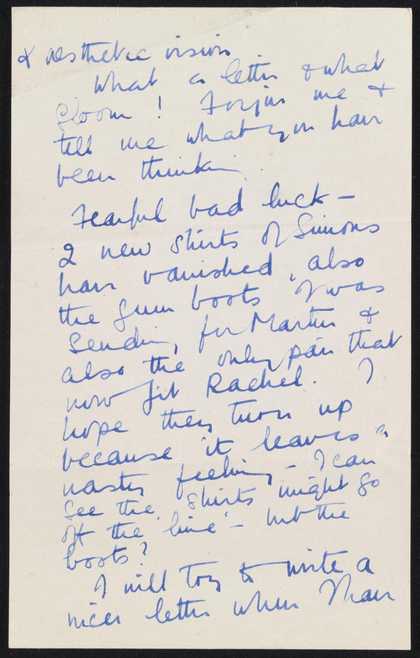 & aesthetic vision
What a letter & what
gloom! Forgive me &
tell me what you have
been thinking.
Fearful bad luck –
2 new shirts of Simons
have vanished, also
the gum boots I was
sending for Martin &
also the only pair that
now fit Rachel. I
hope they turn up
because it leaves a
nasty feeling – I can
see the shirts might go
off the line – but the
boots?
I will try to write a
nicer letter when I have